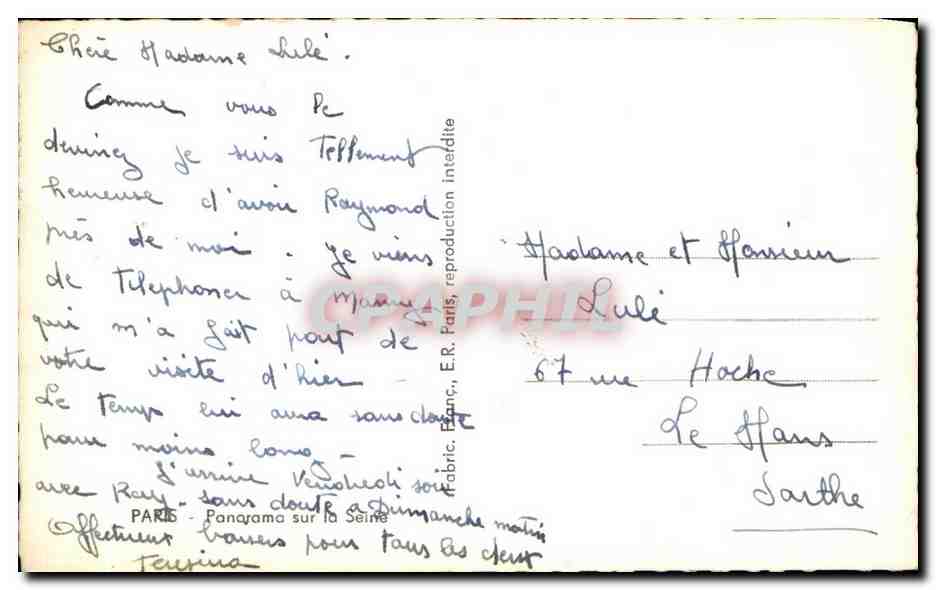 Chère Madame Lulé.
Comme vous le
devinez je suis Tellement
heureuse d'avoir Raymond
près de moi. Je viens
de Telephoner à Mamy
qui m'a fait part de
votre visite d'hier -
Le Temps lui aura sans doute
paru moins long -
J'arrive Vendredi soir
avec Ray - sans doute a Dimanche matin
PARIS - Panorama sur la Seine
Affectueux baisers pour tous les deux
Teresina
Fabric. Franç., E.R. Paris, reproduction interdite
Madame et Monsieur
Lulé
67 rue Hoche
Le Mans
Sarthe
CPAPHIL